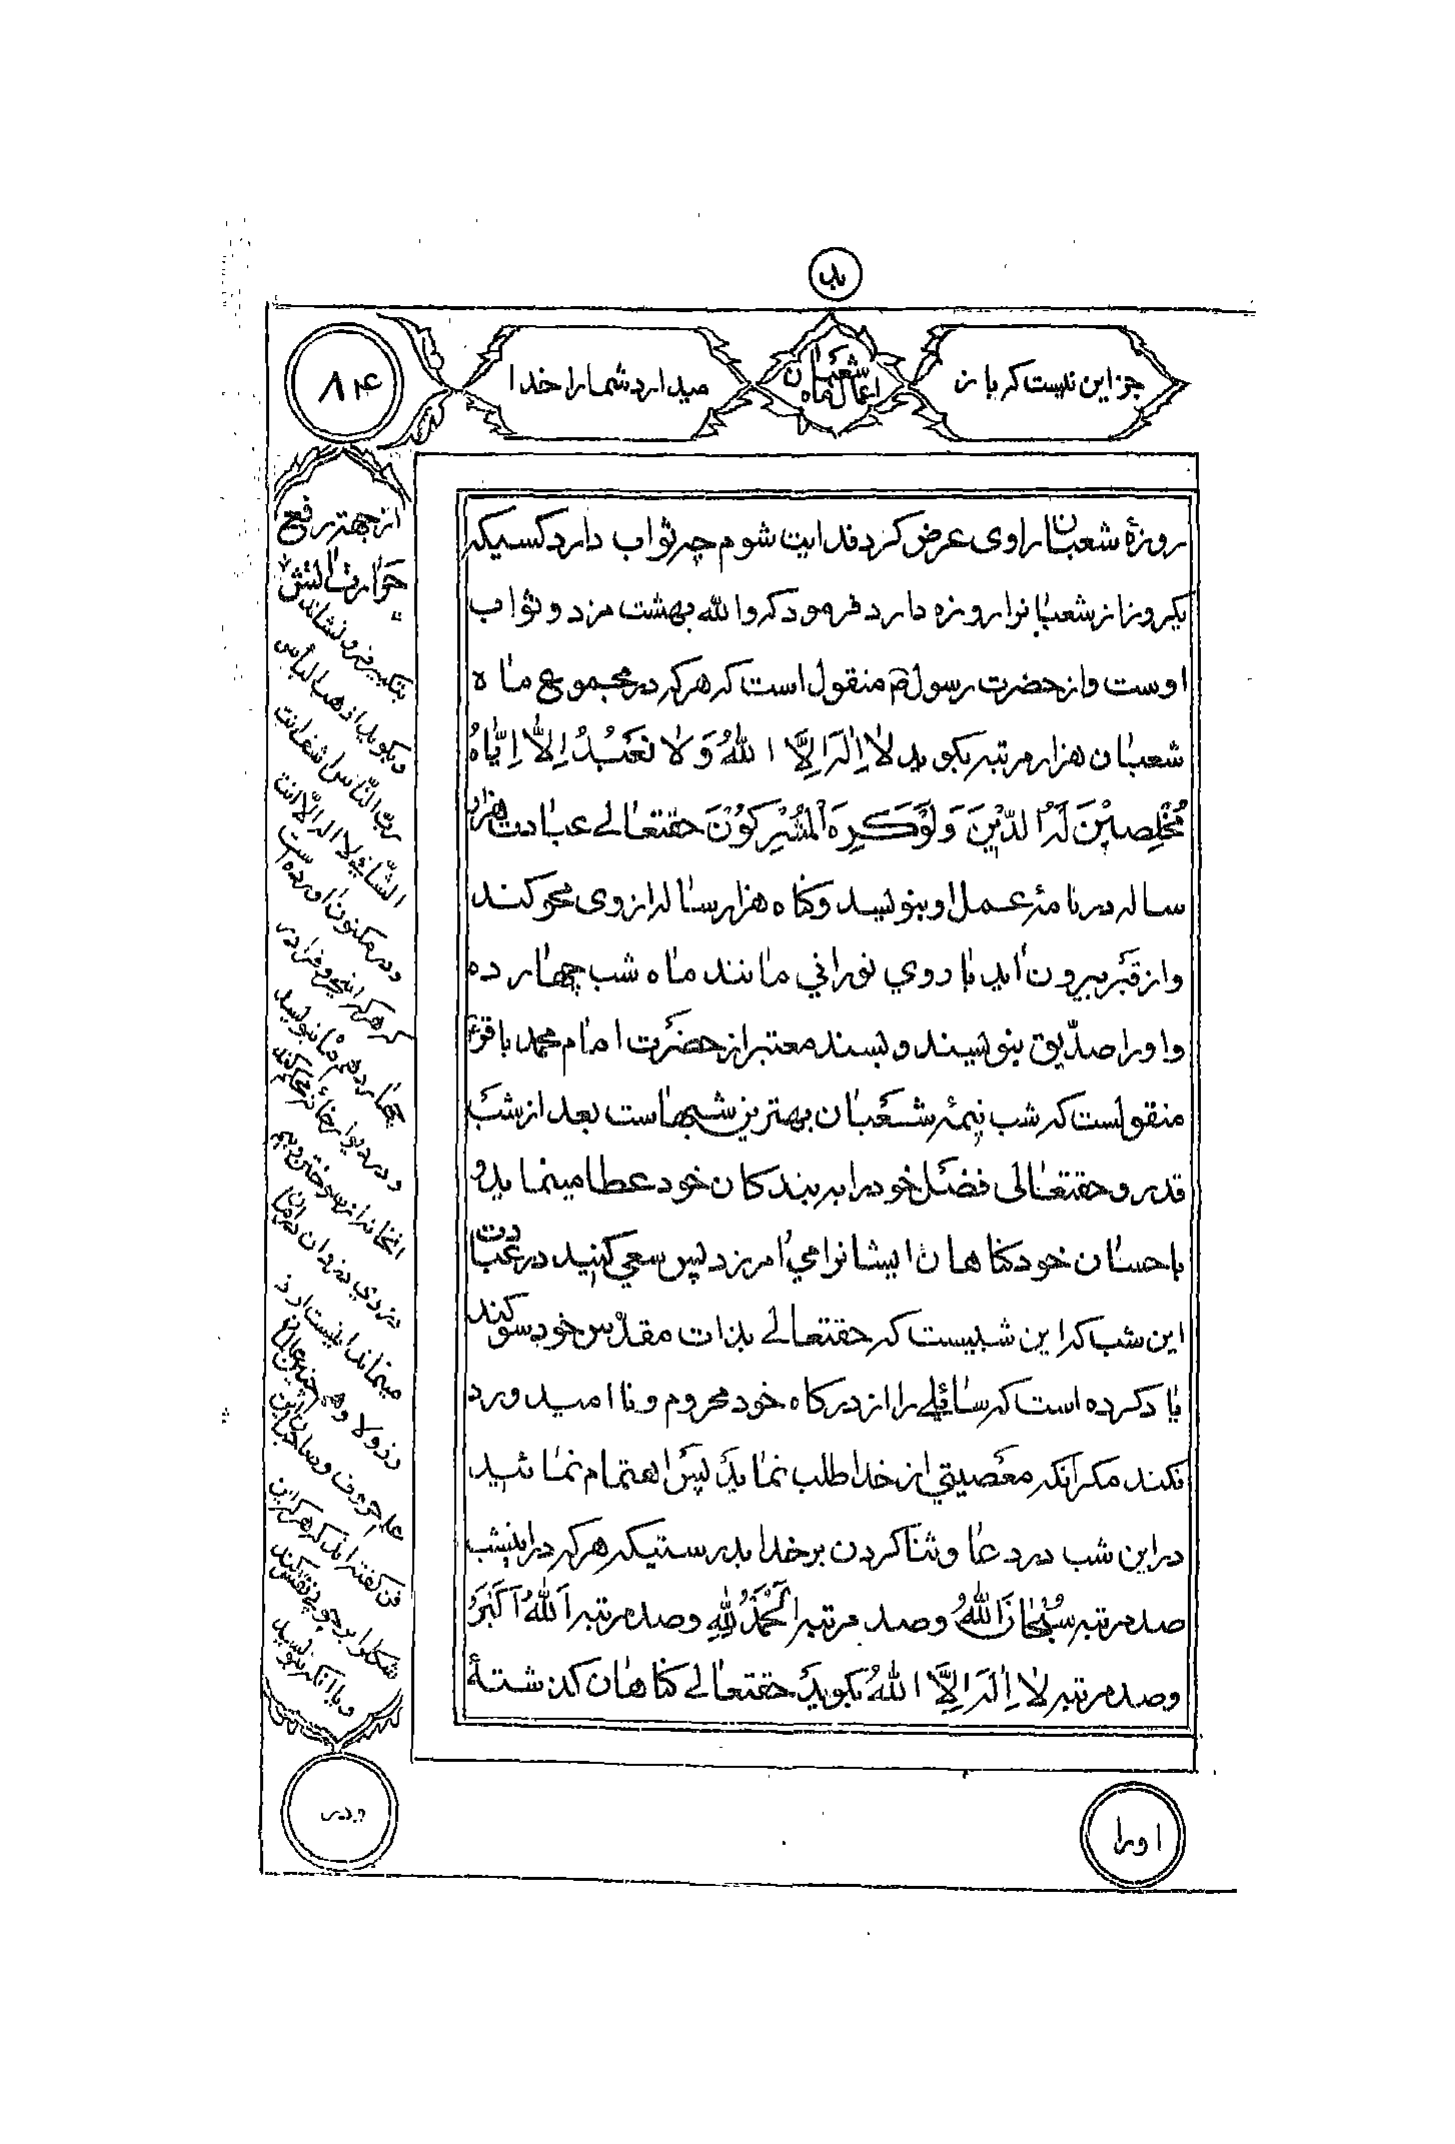 جز این نیست که باز
اعمال ماه شعبان
میدارد شما را خدا
۸۴
روزهٔ شعبان راوی عرض کرد فدایت شوم چه ثواب دارد کسیکه
یکروز از شعبانرا روزه دارد فرمود که والله بهشت مزد و ثواب
اوست و از حضرت رسول ص منقول است که هر که در مجموع ماه
شعبان هزار مرتبه بکوید لا اِلٰهَ اِلَّا اللهُ وَ لا نَعْبُدُ اِلّا اِیّاهُ
مُخْلِصِیْنَ لَهُ الدّیْنَ وَ لَوْ کَرِهَ الْمُشْرِکُوْنَ حقتعالی عبادت هزار
ساله در نامهٔ عمل او بنویسد و کناه هزار ساله از وی محو کند
و از قبر بیرون اید با روی نورانی مانند ماه شب چهارده
و او را صدّیق بنویسند و بسند معتبر از حضرت امام محمد باقر ع
منقولست که شب نیمهٔ شعبان بهترین شبهاست بعد از شب
قدر و حقتعالی فضل خود را بر بندکان خود عطا مینماید و
باحسان خود کناهان ایشانرا می امرزد پس سعی کنید در عبادت
این شب که این شبیست که حقتعالی بذات مقدّس خود سوکند
یاد کرده است که سائلی را از درکاه خود محروم و نا امید و رد
نکند مکر آنکه معصیتی از خدا طلب نماید پس اهتمام نمائید
در این شب در دعا و ثنا کردن بر خدا بدرستیکه هر که در اینشب
صد مرتبه سُبْحانَ اللهُ وصد مرتبه اَلْحَمْدُ لِلّٰهِ وصد مرتبه اَللهُ اَکْبَرُ
وصد مرتبه لا اِلٰهَ اِلَّا اللهُ بکوید حقتعالی کناهان کذشتهٔ
از جهتر رفع
حرارت اتش
بتکبیر فرو نشاند
و بکوید اذهب الباس
ربّ النّاس اشف انت
الشّافی لا اله الّا انت
و در مکنون اورده است
و در دیوار خانه
اورا
ودر